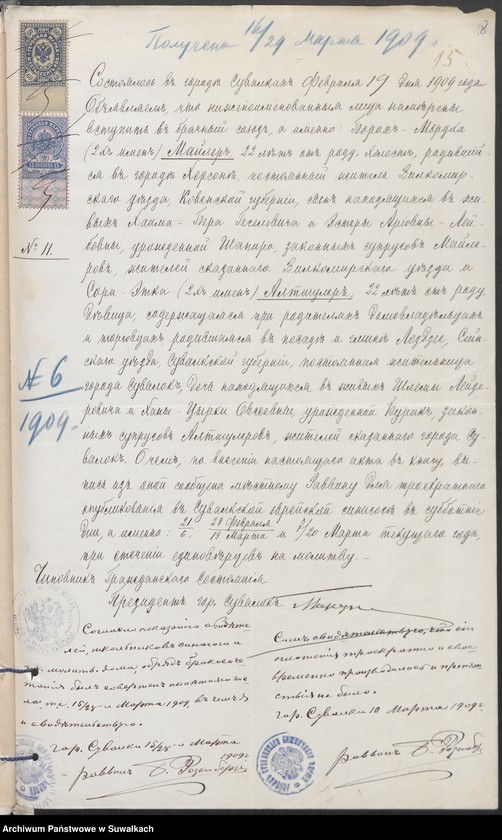 Получено 16/29 Марта 1909 г.
15.
Состоялось въ городѣ Сувалкахъ Февраля 19 дня 1909 года
Объявляемъ, что нижепоименованныя лица намѣрены
вступить въ брачный союзъ, а именно: Борохъ-Мордха
(2хъ именъ) Майлеръ, 22 лѣтъ отъ роду, холостъ, родивший-
ся въ городѣ Херсонѣ, постоянный житель Вилкомир-
скаго уѣзда Ковенской губернiи, сынъ находящихся въ жи-
выхъ Хаима-Бера Гесилевича и Эстеры Ароновны-Лей-
бовны, урожденной Шапиро, законныхъ супруговъ Майле-
ровъ, жителей сказаннаго Вилкомирскаго уѣзда и
Сора-Этка (2хъ именъ) Алтшулеръ, 22 лѣтъ отъ роду,
Дѣвица, содержащаяся при родителяхъ домовладѣльцахъ
и торговцахъ, родившаяся въ посадѣ и гминѣ Лоздзее, Сейн-
скаго уѣзда, Сувалкской губернiи, постоянная жительница
города Сувалокъ, Дочь находящихся въ живыхъ Шлемы Лейзе-
ровича и Ханы-Цырки Овсеевны, урожденной законн-
ныхъ супруговъ Алтшулеровъ, жителей сказаннаго города Су-
валокъ. О чемъ, по внесенiи настоящаго акта въ книгу, вы-
пись изъ оной сообщена мѣстному Раввину для троекратнаго
опубликованiя въ Сувалкской еврейской синагогѣ въ субботнiе
дни, а именно: 21/6, 28 Февраля/13 Марта и 7/20 Марта текущаго года,
при стеченiи единовѣрцевъ на молитву.
Чиновникъ Гражданскаго Состоянiя
Президентъ гор. Сувалокъ
№ 11.
№ 6
1909.
Согласно показанiю свидѣте-
лей, школьниковъ синагоги и
молитв. дома, обрядъ бракосоче-
танiя былъ совершенъ
ла, т.е. 15/28 Марта 1909, въ чемъ
и свидѣтельствую.
гор. Сувалки 15/28 Марта
1909 г.
Раввинъ Б. Розенбергъ
Симъ свидѣтельствую, что сiи
оглашенiя троекратно и свое-
временно производились и препят-
ствiя не было.
гор. Сувалки 10 Марта 1909 г.
Раввинъ Б. Розенб
Archiwum Państwowe w Suwałkach